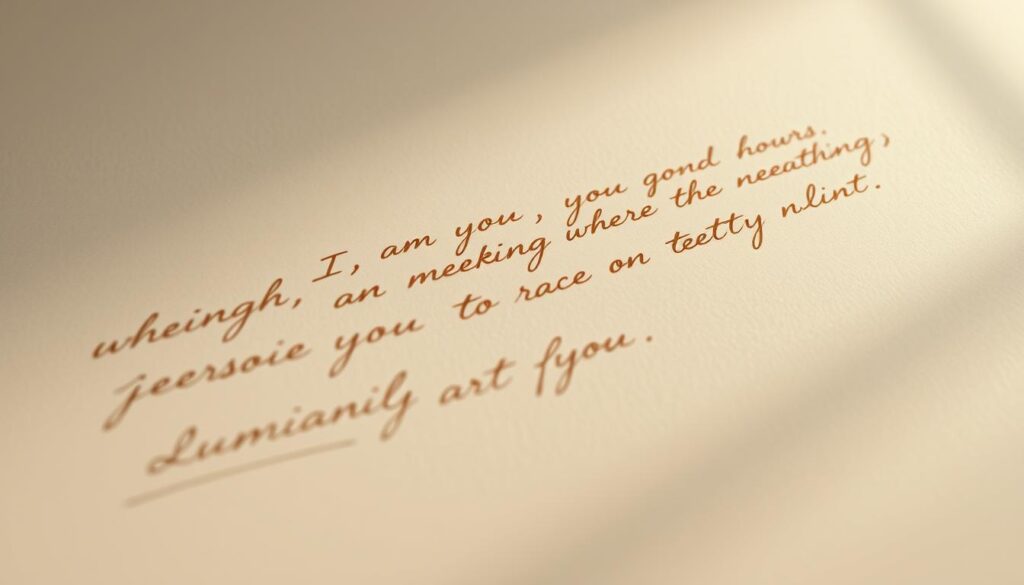 wheingh, I, am you, you gond hours.
an meeking where the neeathing,
jeersoie you to race on teetty nlint.
Lumianily art fyou.